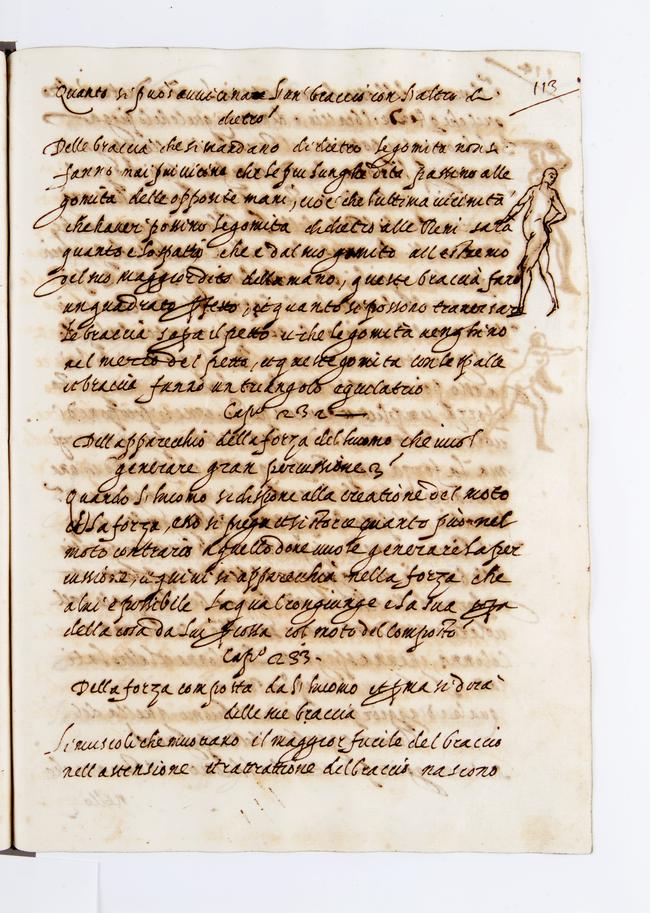 113
Quanto si può avvicinare l'un braccio con l'altro di
dietro
Delle braccia che si mandano di dietro le gomita non si
fanno mai più vicine che le più lunghe dita passino alle
gomita delle opposite mani, cioè che l'ultima vicinità
che haver possino le gomita di dietro alle Reni sarà
quanto è lo spatio che è dal suo gomito all'estremo
del suo maggior dito della mano, queste braccia farà
un quadrato, et quanto si possono traversare
le braccia sopra il petto et che le gomita venghino
nel mezzo del petto, et queste gomita con le spalle
et braccia fanno un triangolo equilatrio
Cap.º 232
Dell'apparecchio della forza del huomo che vuol
generare gran percussione
Quando l'huomo si dispone alla creatione del moto
la forza, esso si piega et si storce quanto può nel
moto contrario a quello dove vuole generare la per
cussione, et quivi si apparecchia nella forza che
a lui è possibile la qual congiunge e la sua
della cosa da lui percossa col moto del composto
Cap.º 233.
Della forza composta da l'huomo et prima si dirà
delle sue braccia
Li muscoli che muovano il maggior fucile del braccio
nell'astensione et ratratione del braccio nascono